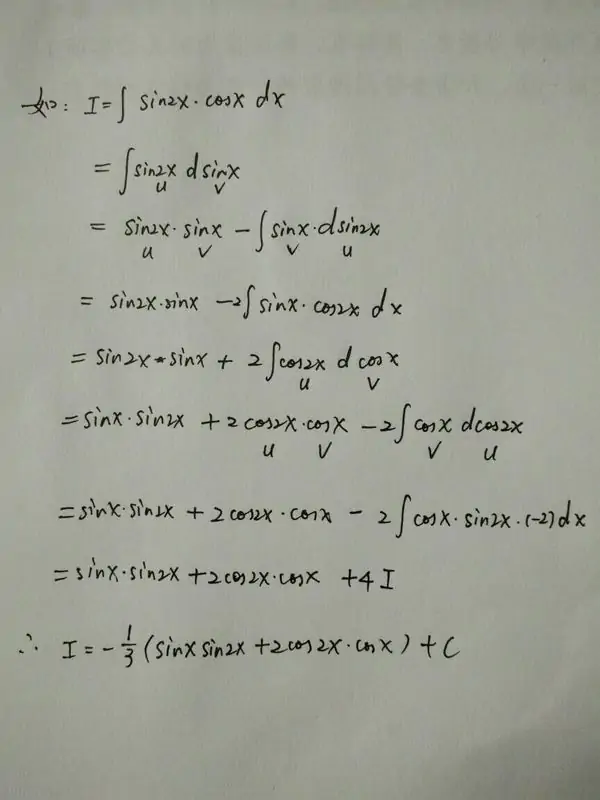 如: I=∫ sin2x·cosx dx
=∫sin2x dsinx
u v
= sin2x·sinx -∫sinx·dsin2x
u v v u
= sin2x·sinx -2∫sinx·cos2x dx
= sin2x·sinx + 2∫cos2x dcosx
u v
=sinx·sin2x +2cos2x·cosx -2∫cosx dcos2x
u v v u
=sinx·sin2x +2cos2x·cosx - 2∫cosx·sin2x·(-2)dx
=sinx·sin2x+2cos2x·cosx +4I
∴ I=-1/3(sinxsin2x+2cos2x·cosx)+C